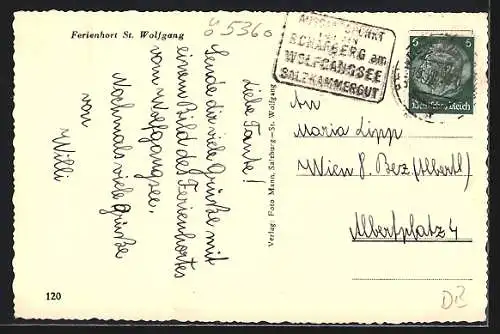 Ferienhort St. Wolfgang
ö 5360
AUSSICHTSPUNKT
SCHAFBERG am
WOLFGANGSEE
SALZKAMMERGUT
5 5
Deutsches Reich
Liebe Tante!
Sende dir viele Grüße mit
einem Bild des Ferienhortes
vom Wolfgangsee.
Nochmals viele Grüße
von
Willi
Verlag: Foto Mann, Salzburg—St. Wolfgang
An
Maria Lipp
Wien 8. Bez (Albertl)
Albertplatz 4
120